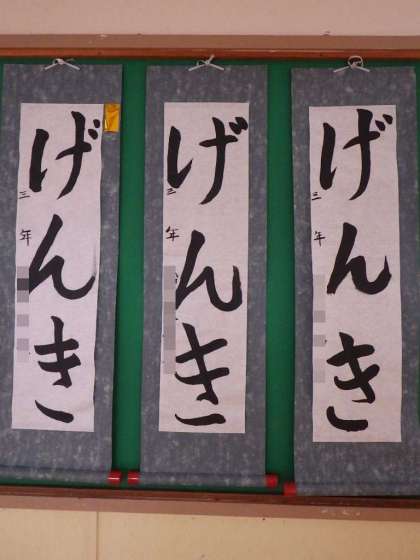 げんき
三年
げんき
三年
げんき
三年